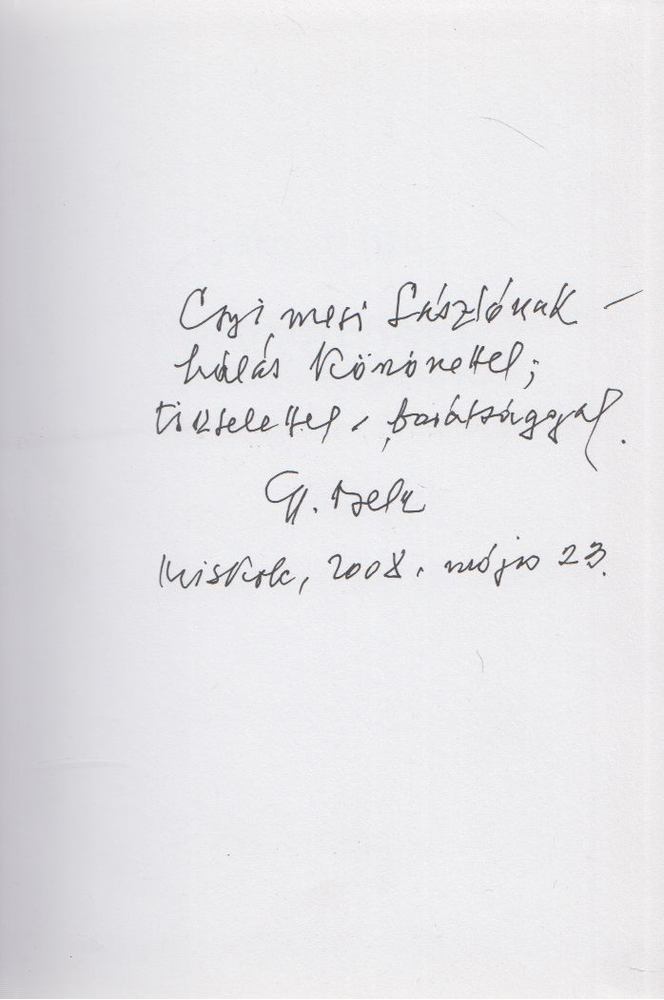 Csizmesi Lászlónak –
hálás köszönettel;
tisztelettel, barátsággal.
Gy. Béla
Miskolc, 2008. május 23.